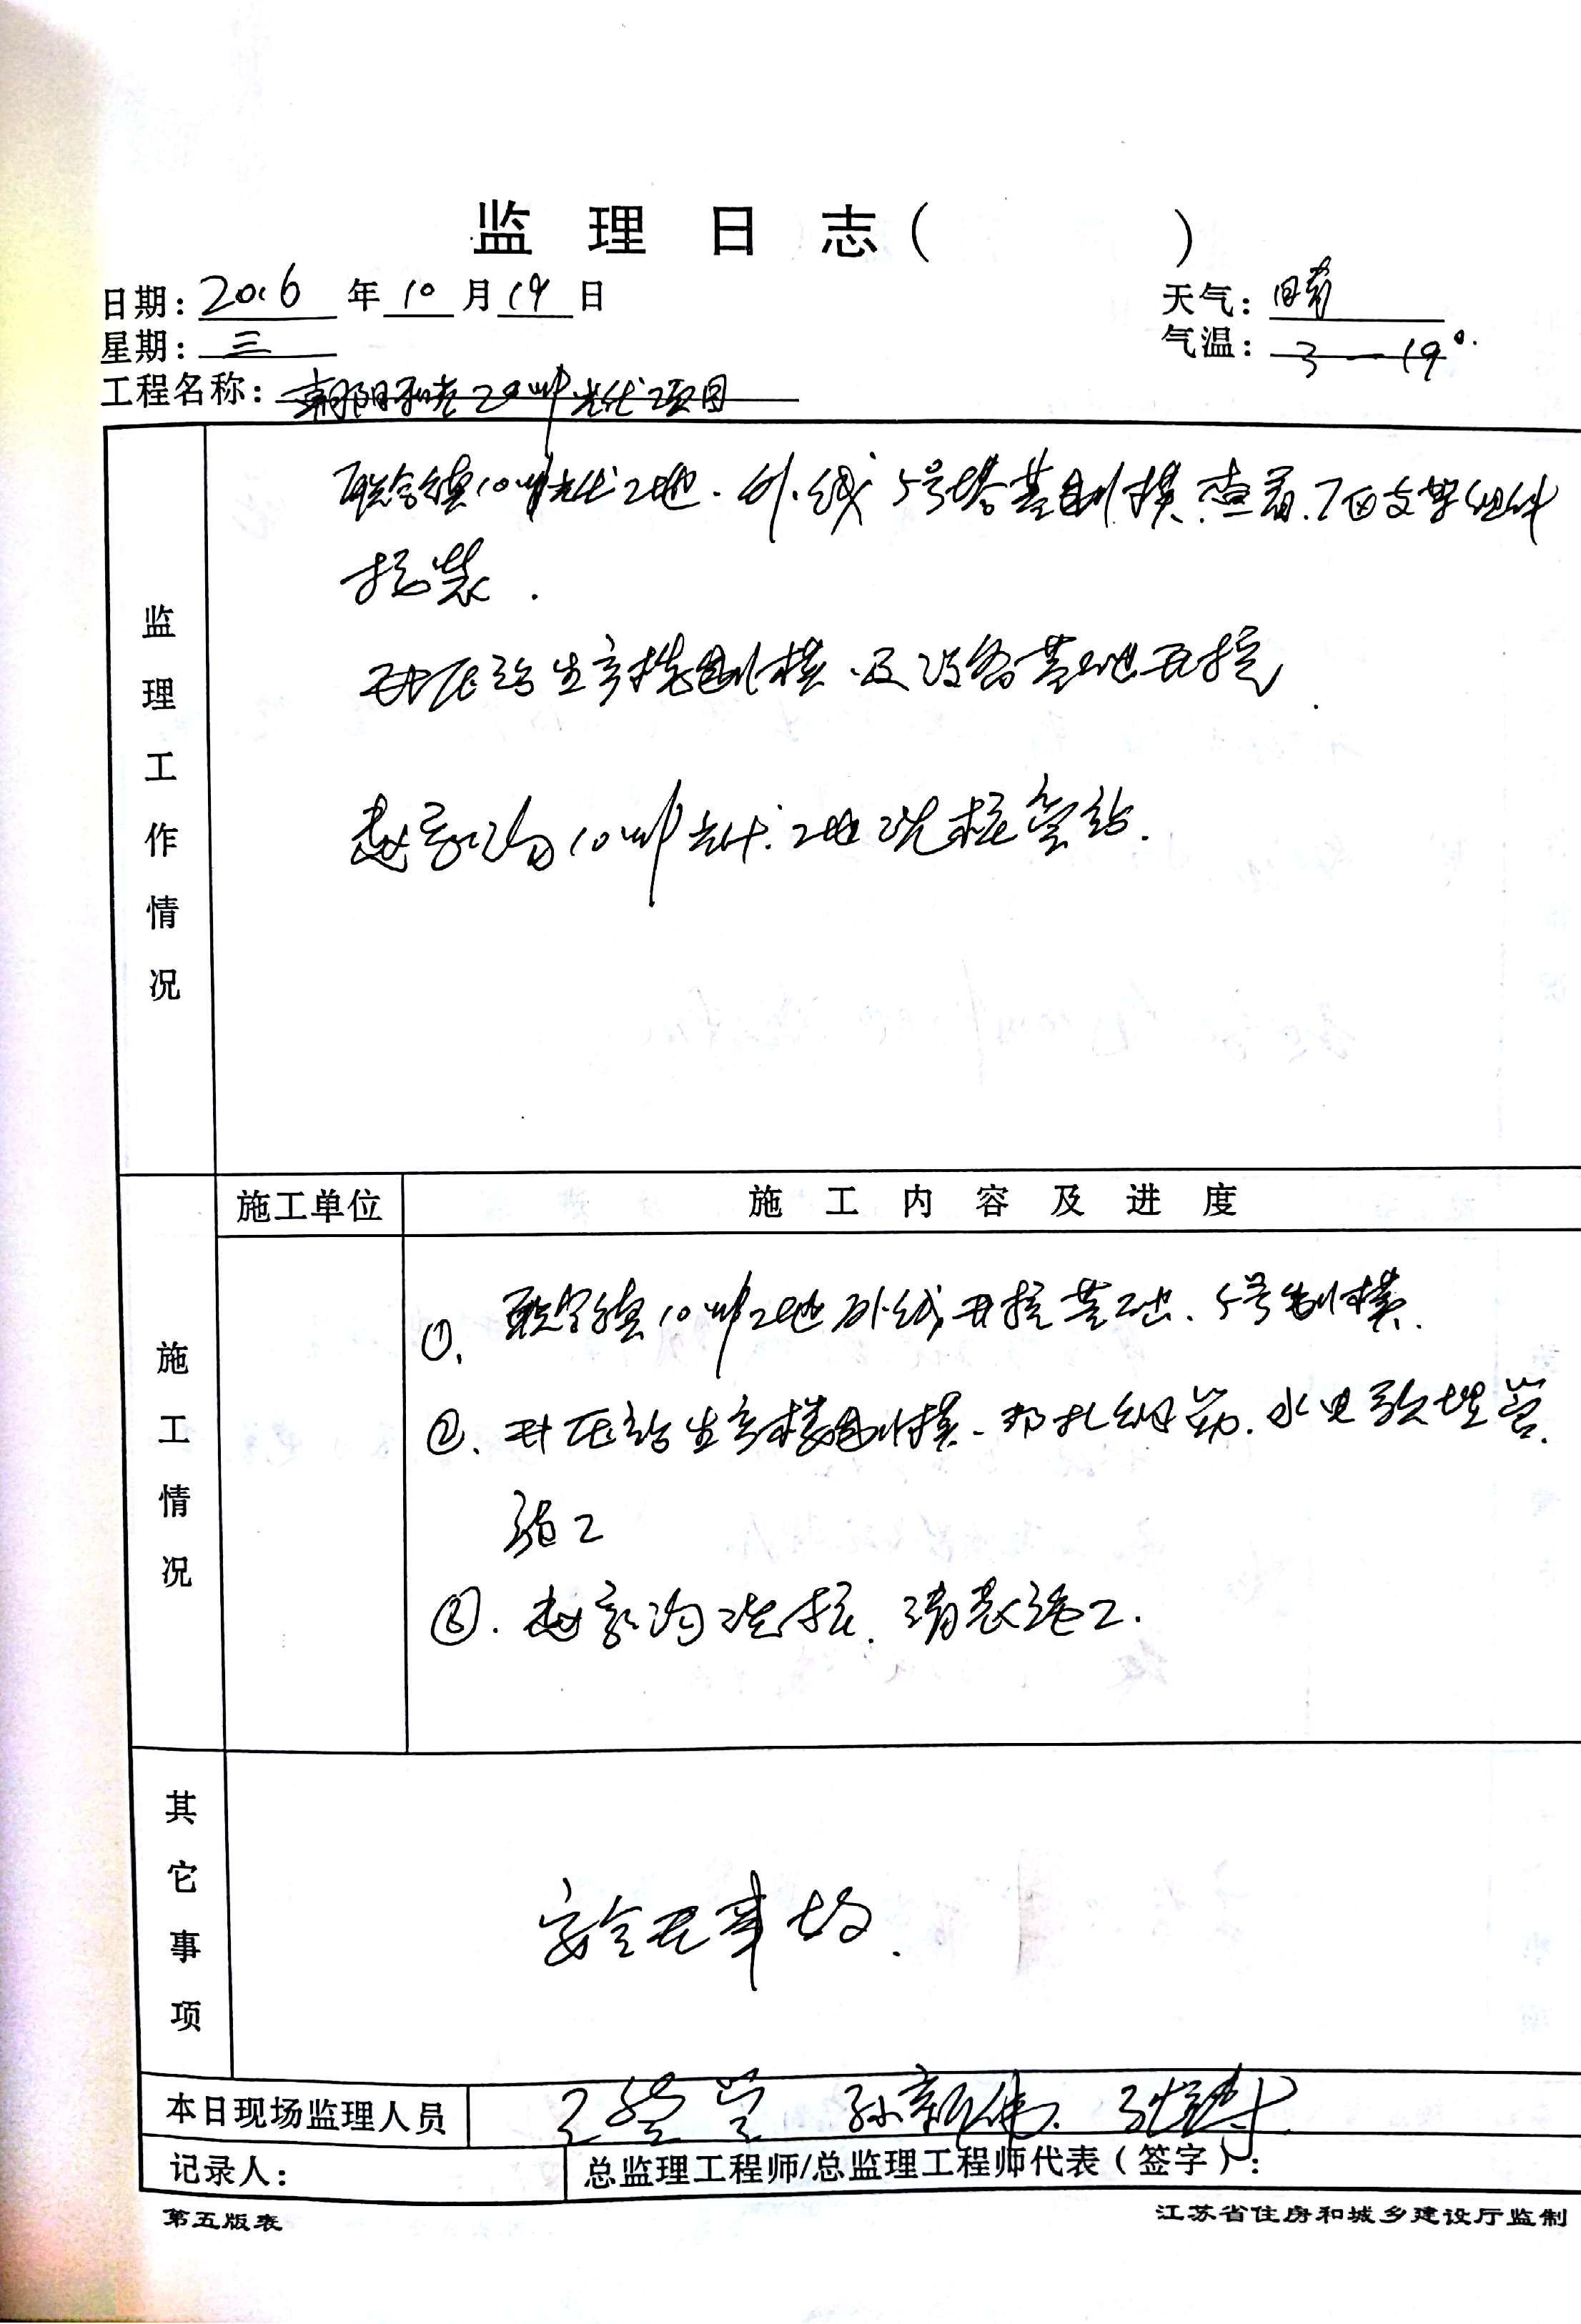 监理日志( )
日期:2016年10月19日 天气:晴
星期:三 气温:3—19°.
工程名称:朝阳 20MW光伏项目
监理工作情况
联合镇10MW光伏工地.外线5号塔基制模.查看.7区支架组件
按装.
升压站生产楼制模.及设备基础开挖.
赵家沟10MW光伏.工地 桩
施工情况
施工单位 施工内容及进度
①.联合镇10MW工地外线开挖基础.5号制模.
②.升压站生产楼制模.邦扎钢筋.水电预埋管.
施工
③.赵家沟 桩. 施工.
其它事项
安全无事故.
本日现场监理人员 孙新伟.
记录人: 总监理工程师/总监理工程师代表(签字):
第五版表 江苏省住房和城乡建设厅监制